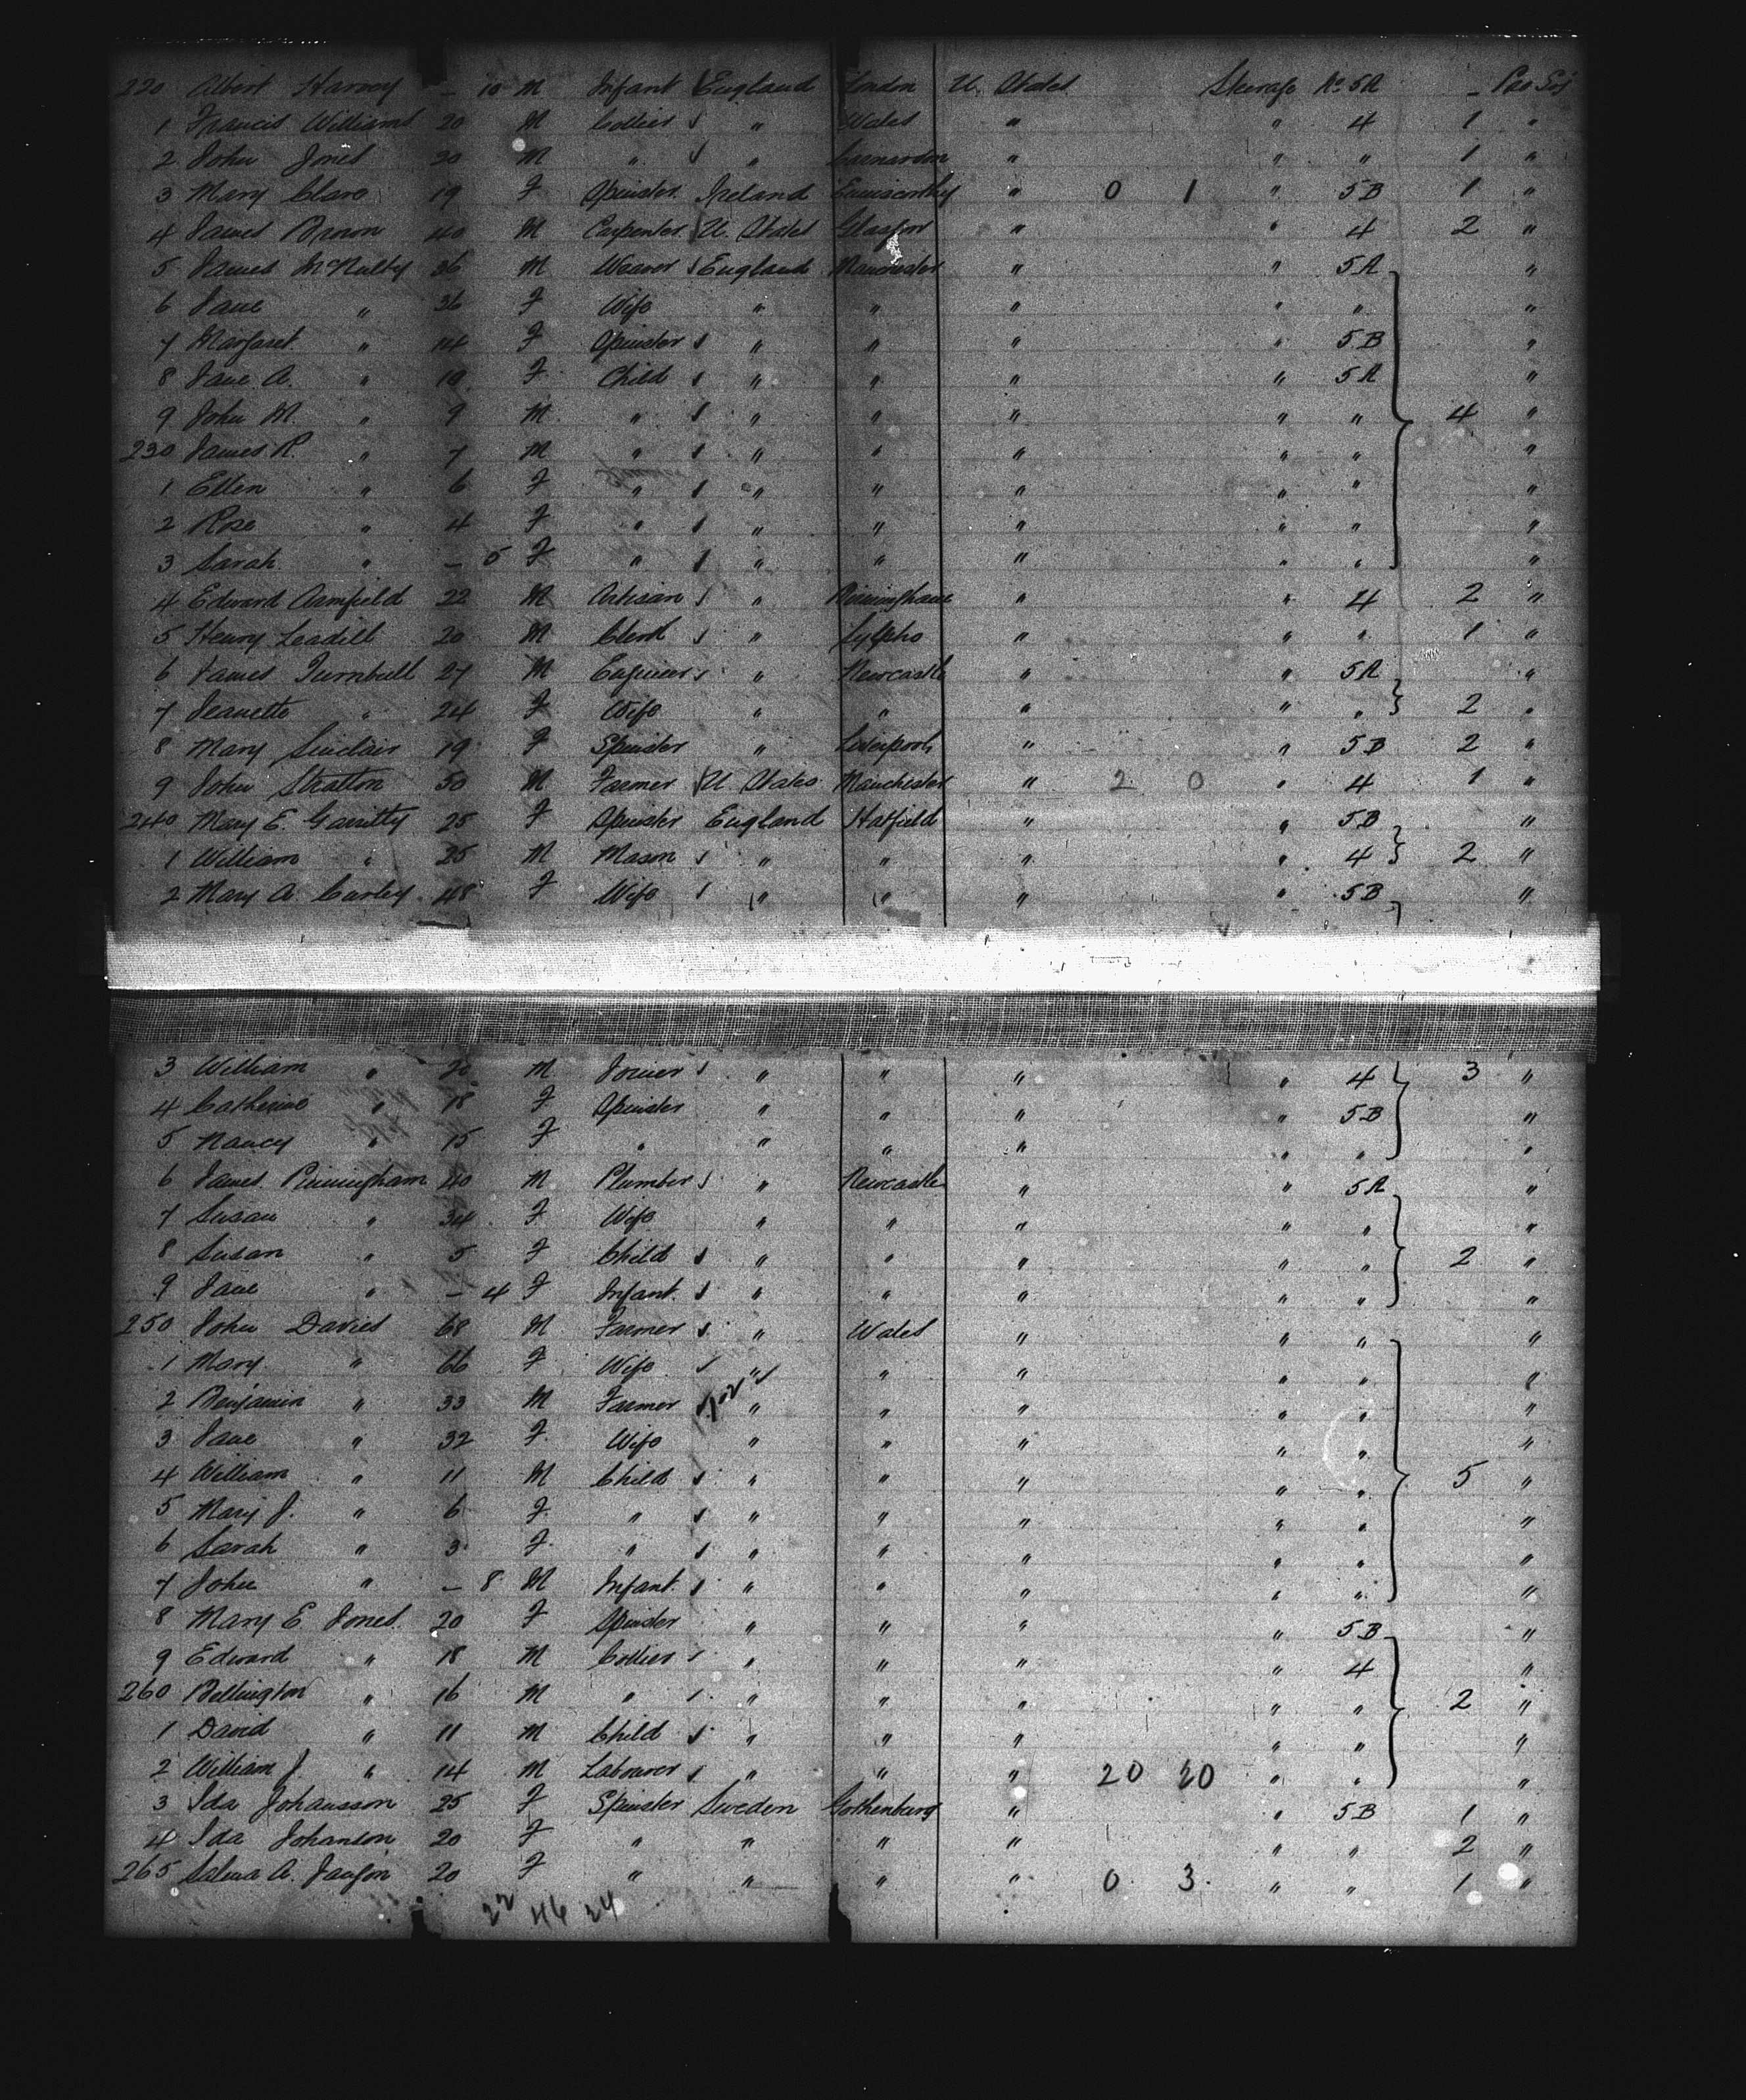 220 Albert Harvey — 10 M Infant England London U. States Steerage No 5A — Pro Soj
1 Francis Williams 20 M Collier " Wales " " 4 1 "
2 John Jones 20 M " " Carnarvon " " " 1 "
3 Mary Clare 19 F Spinster Ireland Enniscorthy " 0 1 " 5B 1 "
4 James Brown 40 M Carpenter U. States Glasgow " " 4 2 "
5 James McNulty 36 M Weaver England Manchester " " 5A "
6 Jane " 36 F Wife " " " " " "
7 Margaret " 14 F Spinster " " " " 5B "
8 Jane A. " 10 F Child " " " " 5A "
9 John M. " 9 M " " " " " " 4 "
230 James R. " 7 M " " " " " " "
1 Ellen " 6 F " " " " " " "
2 Rose " 4 F " " " " " " "
3 Sarah " — 5 F " " " " " " "
4 Edward Armfield 22 M Artisan " Birmingham " " 4 2 "
5 Henry Leadill 20 M Clerk " " " " 1 "
6 James Turnbull 27 M Engineer " Newcastle " " 5A "
7 Jeanette " 24 F Wife " " " " " 2 "
8 Mary Sinclair 19 F Spinster " Liverpool " " 5B 2 "
9 John Stratton 50 M Farmer U. States Manchester " 2 0 " 4 1 "
240 Mary E. Garritty 25 F Spinster England Hatfield " " 5B "
1 William " 25 M Mason " " " " 4 2 "
2 Mary A. Curley 48 F Wife " " " " 5B "
3 William " 20 M Joiner " " " " 4 3 "
4 Catherine " 18 F Spinster " " " " 5B "
5 Nancy " 15 F " " " " " " "
6 James Pinningham 40 M Plumber " Newcastle " " 5A "
7 Susan " 34 F Wife " " " " " "
8 Susan " 5 F Child " " " " " 2 "
9 Jane " — 4 F Infant " " " " " "
250 John Davies 68 M Farmer " Wales " " " "
1 Mary " 66 F Wife " " " " " "
2 Benjamin " 33 M Farmer " " " " " "
3 Jane " 32 F Wife " " " " " "
4 William " 11 M Child " " " " " 5 "
5 Mary J. " 6 F " " " " " " "
6 Sarah " 3 F " " " " " " "
7 John " — 8 M Infant " " " " " "
8 Mary E Jones 20 F Spinster " " " " 5B "
9 Edward " 18 M Collier " " " " 4 "
260 Bellington " 16 M " " " " " " 2 "
1 David " 11 M Child " " " " " "
2 William J. " 14 M Labourer " " " 20 20 " " "
3 Ida Johansson 25 F Spinster Sweden Gothenburg " " 5B 1 "
4 Ida Johanson 20 F " " " " " " 2 "
265 Selma A. Janson 20 F " " " " 0 3 " " 1 "
22 46 24